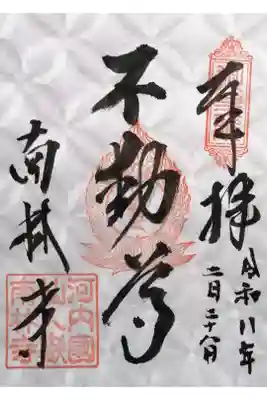 奉拝
令和八年
二月二十八日
不動尊
南林寺
河内國
南林寺